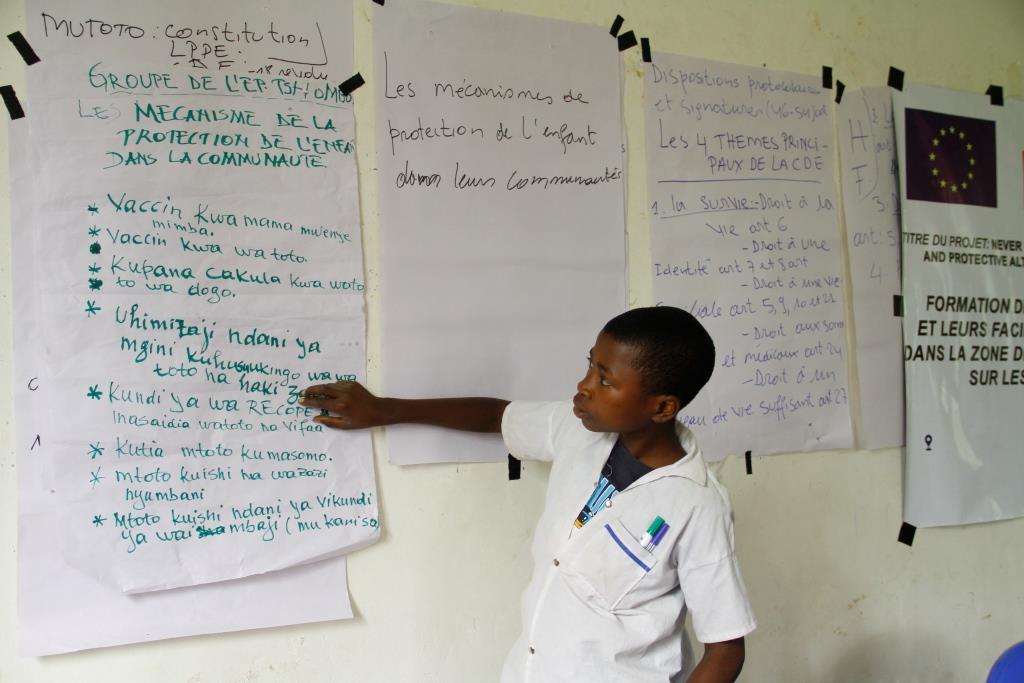 MUTOTO: constitution
LPPE:
GROUPE DE L'EP.TSHOMBO
LES MECANISME DE LA
PROTECTION DE L'ENFAN
DANS LA COMMUNAUTE
* Vaccin kwa mama mwenye
mimba.
* Vaccin kwa watoto.
* Kupana cakula kwa wato
to wa dogo.
* Uhimizaji ndani ya
mgini kuhusu kingo wa wa
toto na haki
* Kundi ya wa RECOPE
inasaidia watoto na vifaa
* Kutia mtoto kumasomo.
* mtoto kuishi na wazazi
nyumbani
* Mtoto kuishi ndani ya vikundi
ya wai mbaji (mu kanisa
Les mécanismes de
protection de l'enfant
dans leurs communautés
Dispostions protocolaire
et signatures (46-54)
Les 4 THEMES PRINCI-
PAUX DE LA CDE
1. la SURVIE:-Droit à la
vie art 6
- Droit à une
Identité art 7 et 8 art
- Droit à une vie
art 5, 9, 10 et 21
- Droit aux soin
et médicaux art 24
- Droit à un
de vie suffisant art 27
H
F
art
3.
art: 5
4
TITRE DU PROJET: NEVER
AND PROTECTIVE ALT
FORMATION D
ET LEURS FACI
DANS LA ZONE DE
SUR LES